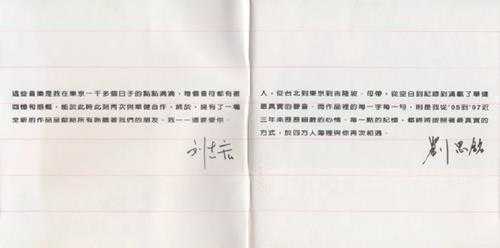 這些音樂是我在東京一千多個日子的點點滴滴，每個音符都有著
回憶和感觸，能於此時此刻再次與華健合作，終於，擁有了一張
全新的作品呈獻給所有聆聽著我們的朋友，我一一還要學你。
刘志宏
人，從台北到東京到吉隆坡，母帶，從空白到紀錄到滿載了華健
最真實的聲音，而作品裡的每一字每一句，則是我從'95到'97近
三年來歷歷細數的心情，每一點的記憶，都將將按照著最真實的
方式，於四方人海裡與你再次相遇。
劉思銘